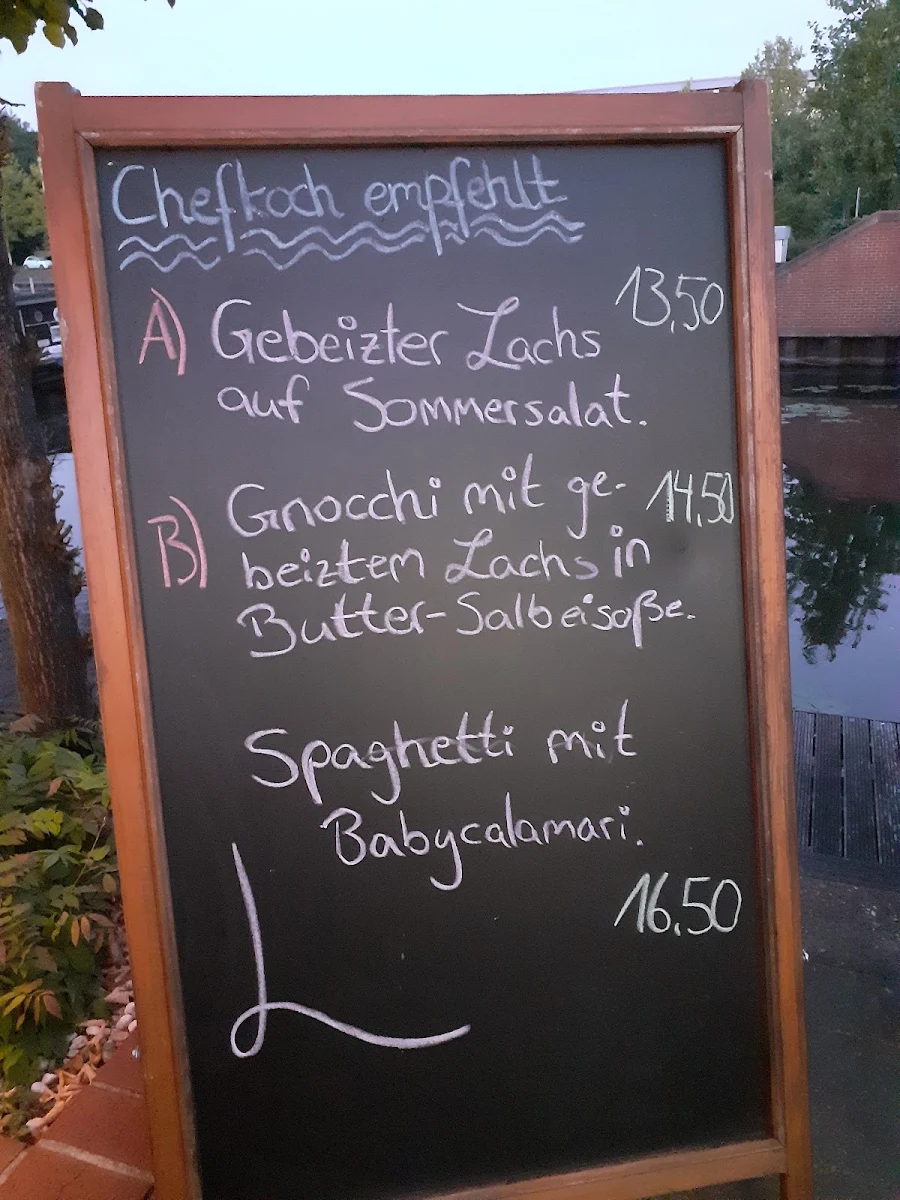 Chefkoch empfehlt
A) Gebeizter Lachs 13,50
auf Sommersalat.
B) Gnocchi mit ge- 14,50
beiztem Lachs in
Butter-Salbeisoße.
Spaghetti mit
Babycalamari.
16,50